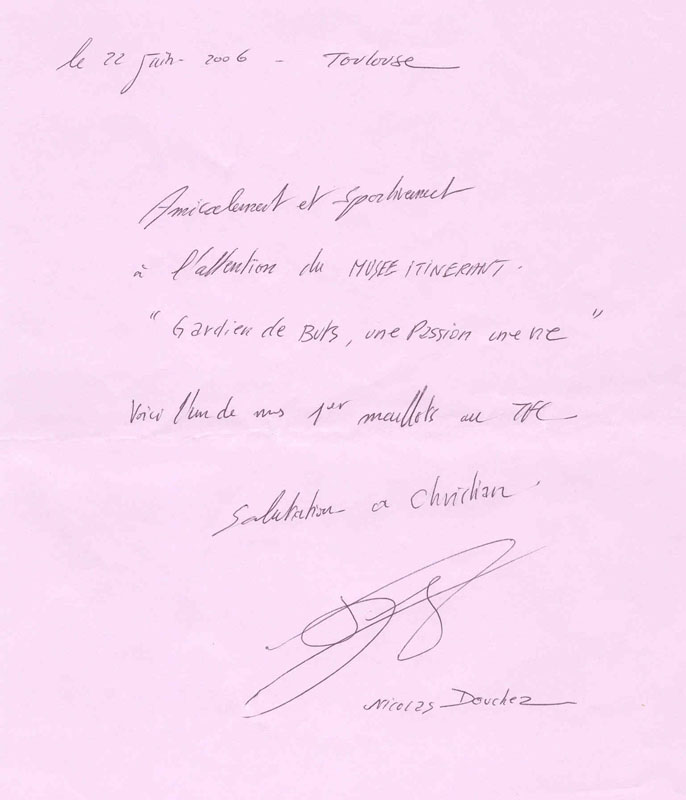 le 22 juin - 2006 - Toulouse
Amicalement et sportivement
à l'attention du MUSEE ITINERANT.
"Gardien de Buts, une Passion une vie"
Voici l'un de mes 1er maillots au TFC
Salutation a Christian.
Nicolas Douchez